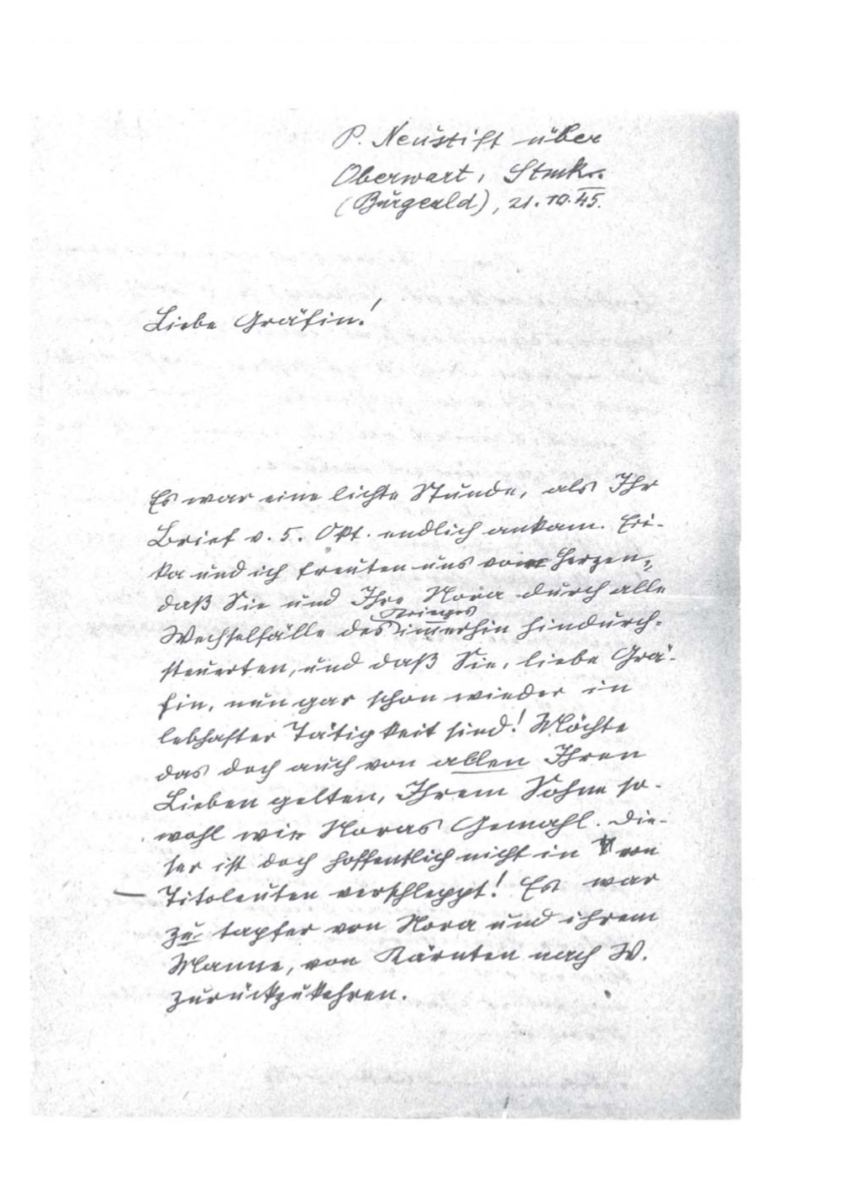 P. Neustift über
Oberwart, Stmk.
(Burgenld), 21.10.45.
Liebe Gräfin!
Es war eine lichte Stunde, als Ihr
Brief v. 5. Okt. endlich ankam. Eri-
ka und ich freuten uns von Herzen,
daß Sie und Ihre Nora durch alle
Krieges
Wechselfälle des immerhin hindurch-
steuerten, und daß Sie, liebe Grä-
fin, nun gar schon wieder in
lebhafter Tätigkeit sind! Möchte
das doch auch von allen Ihren
Lieben gelten, Ihrem Sohne so-
wohl wie Noras Gemahl. Die-
ser ist doch hoffentlich nicht in von
Titoleuten verschleppt! Es war
zu tapfer von Nora und ihrem
Manne, von Kärnten nach W.
zurückzukehren.